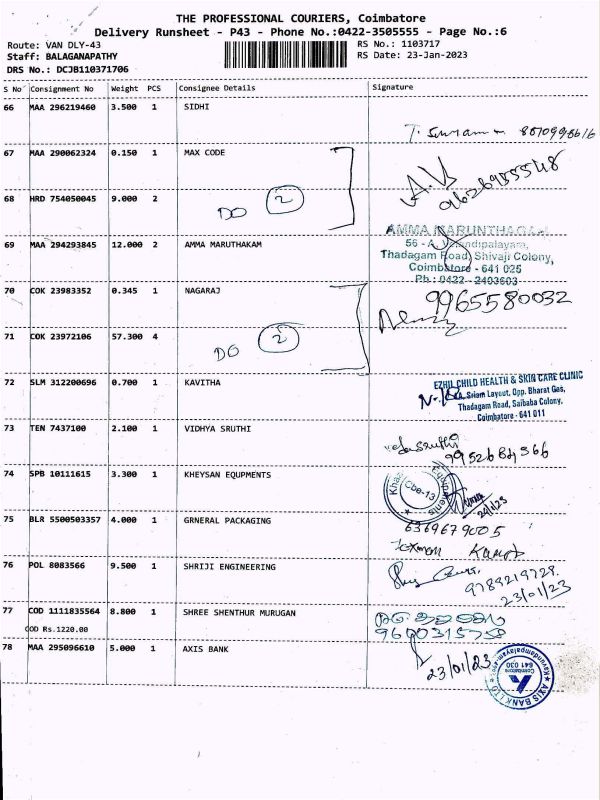 THE PROFESSIONAL COURIERS, Coimbatore
Delivery Runsheet - P43 - Phone No.:0422-3505555 - Page No.:6
Route: VAN DLY-43 RS No.: 1103717
Staff: BALAGANAPATHY RS Date: 23-Jan-2023
DRS No.: DCJB110371706
S No Consignment No Weight PCS Consignee Details Signature
66 MAA 296219460 3.500 1 SIDHI
67 MAA 290062324 0.150 1 MAX CODE
A.V
68 HRD 754050045 9.000 2
DO 2
AMMA MARUNTHAGAM
69 MAA 294293845 12.000 2 AMMA MARUTHAKAM
56 - A, Velandipalayam,
Thadagam Road, Shivaji Colony,
Coimbatore - 641 025
Ph.: 0422 - 2403603
70 COK 23983352 0.345 1 NAGARAJ
9965580032
71 COK 23972106 57.300 4
DO 2
72 SLM 312200696 0.700 1 KAVITHA
EZHIL CHILD HEALTH & SKIN CARE CLINIC
Sriam Layout, Opp. Bharat Gas,
Thadagam Road, Saibaba Colony,
Coimbatore - 641 011
73 TEN 7437100 2.100 1 VIDHYA SRUTHI
74 SPB 10111615 3.300 1 KHEYSAN EQUPMENTS
Equipments
Cbe-13
75 BLR 5500503357 4.000 1 GRNERAL PACKAGING
6369679005
76 POL 8083566 9.500 1 SHRIJI ENGINEERING
9789219729
23/01/23
77 COD 1111835564 8.800 1 SHREE SHENTHUR MURUGAN
COD Rs.1220.00
9600315758
78 MAA 295096610 5.000 1 AXIS BANK
23/01/23
AXIS BANK LTD
Coimbatore
641 030